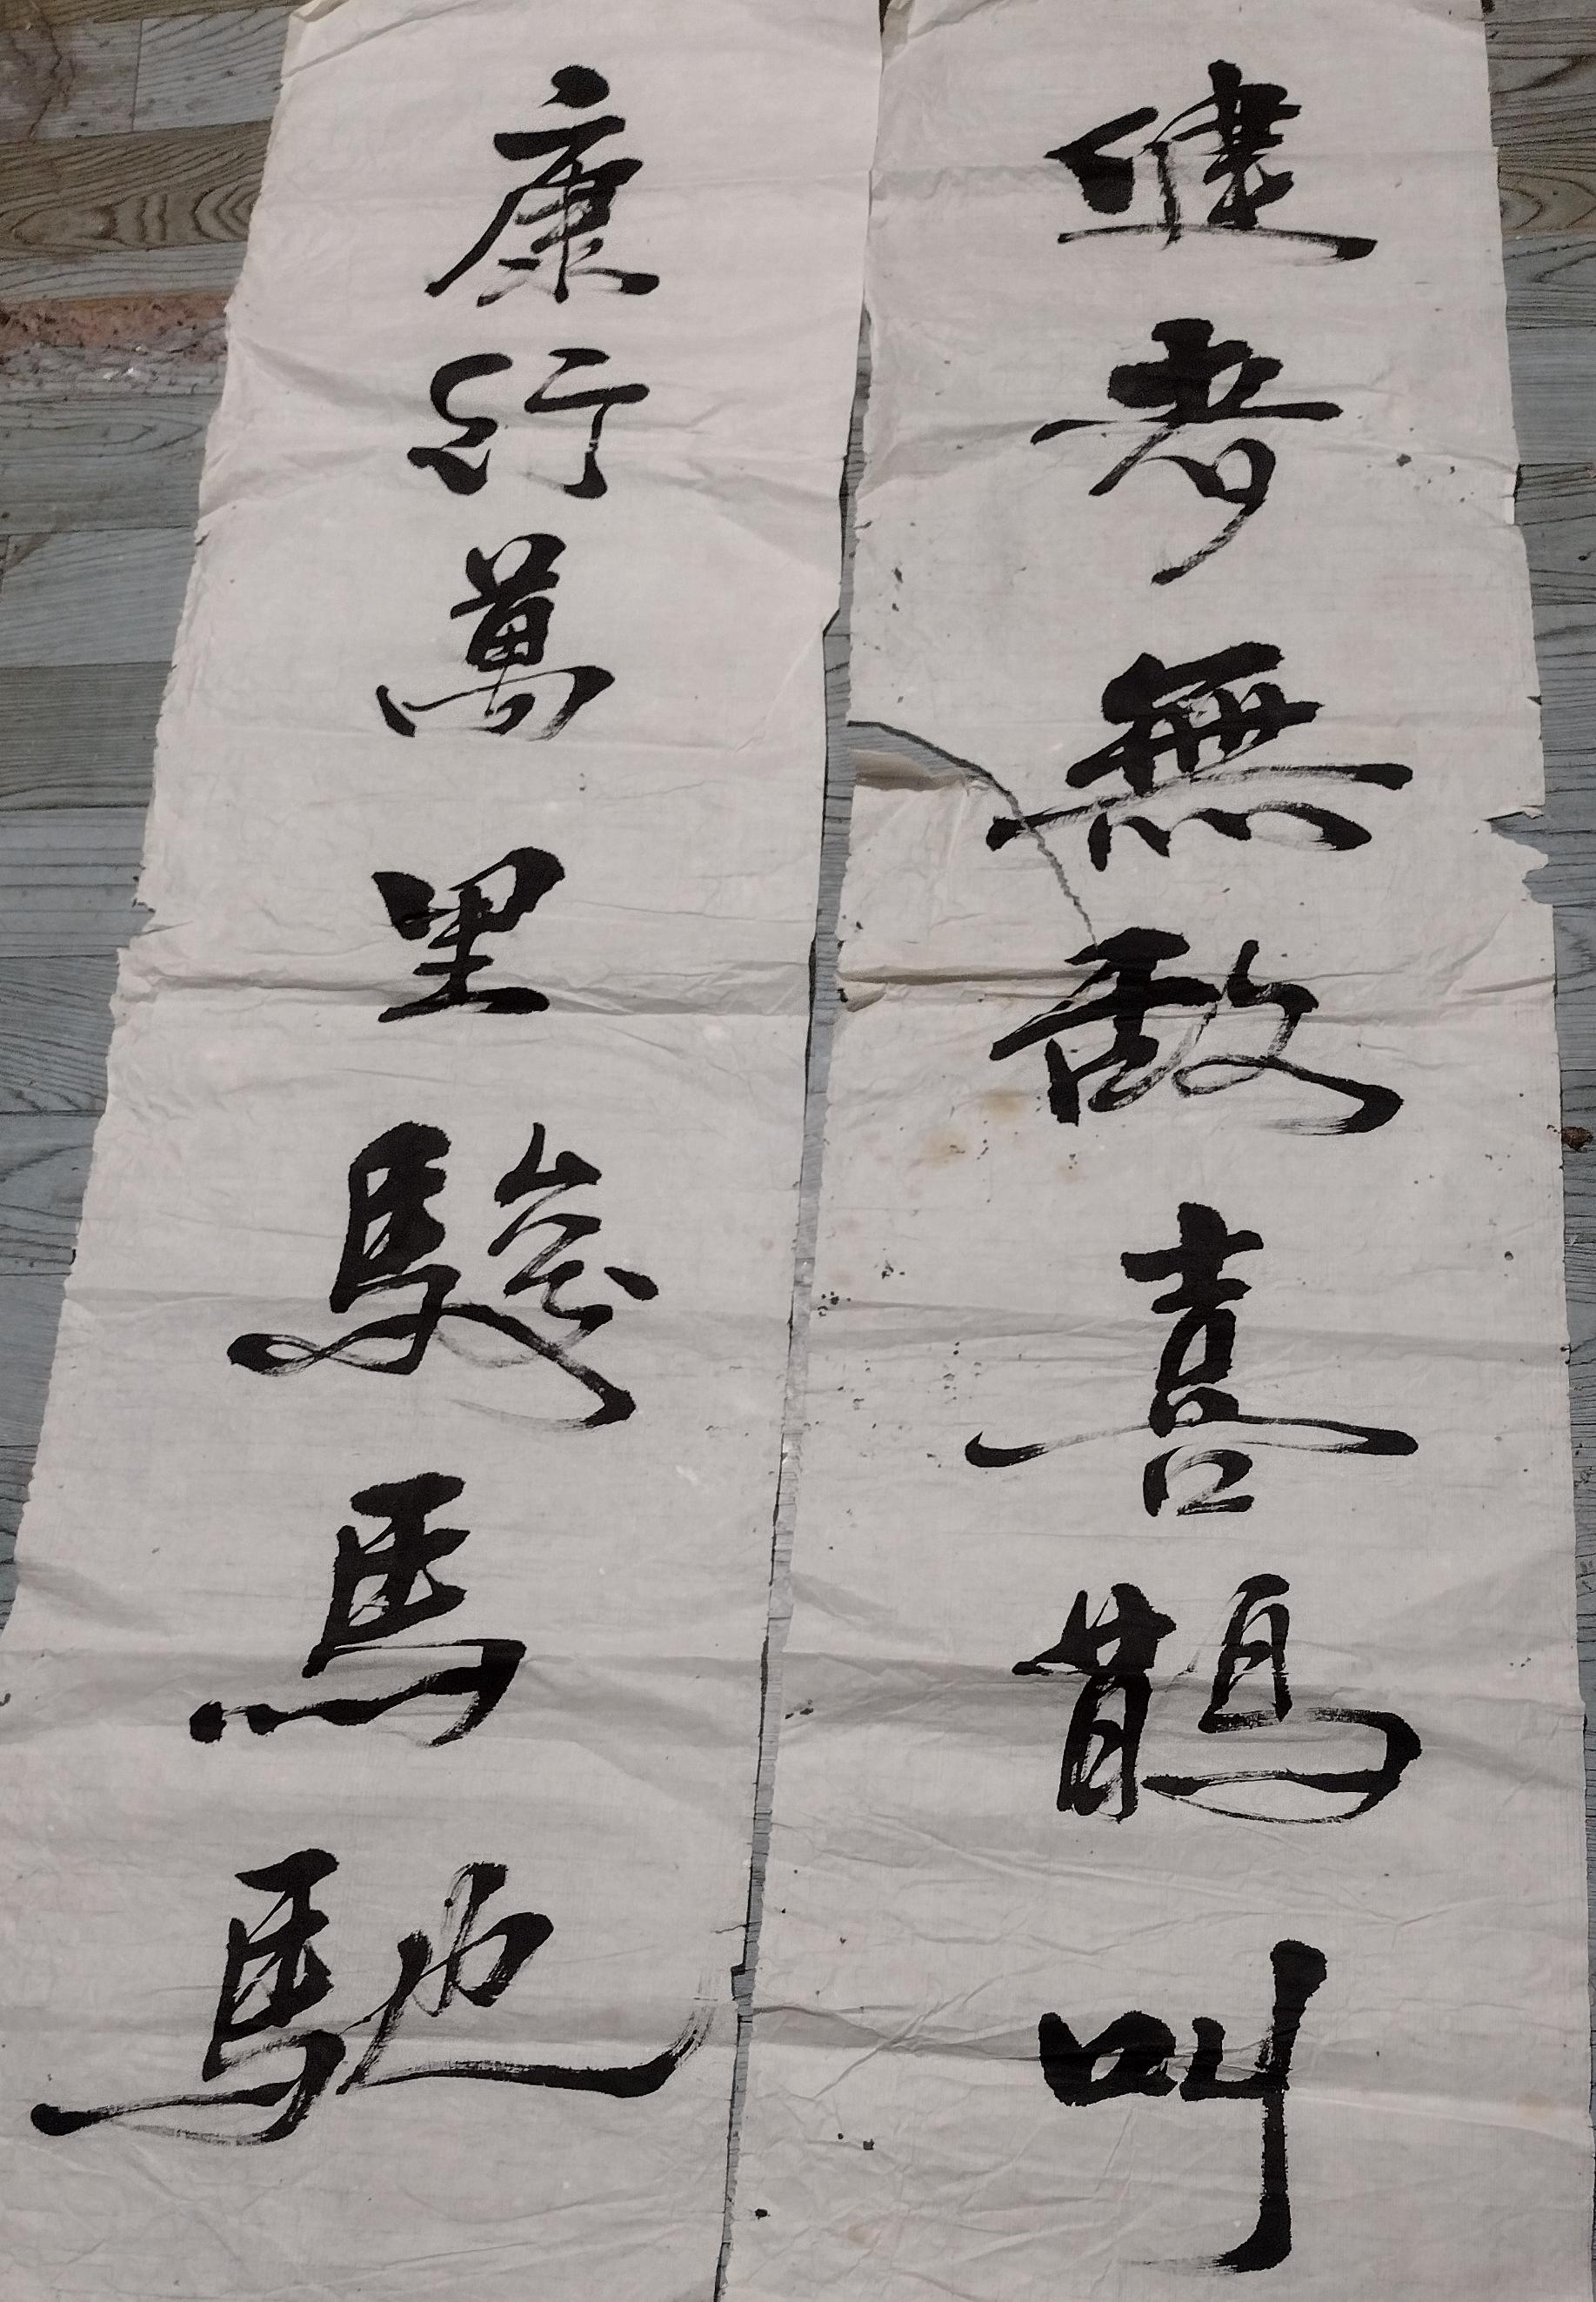 健者無敵喜鵲叫
康行萬里駿馬馳